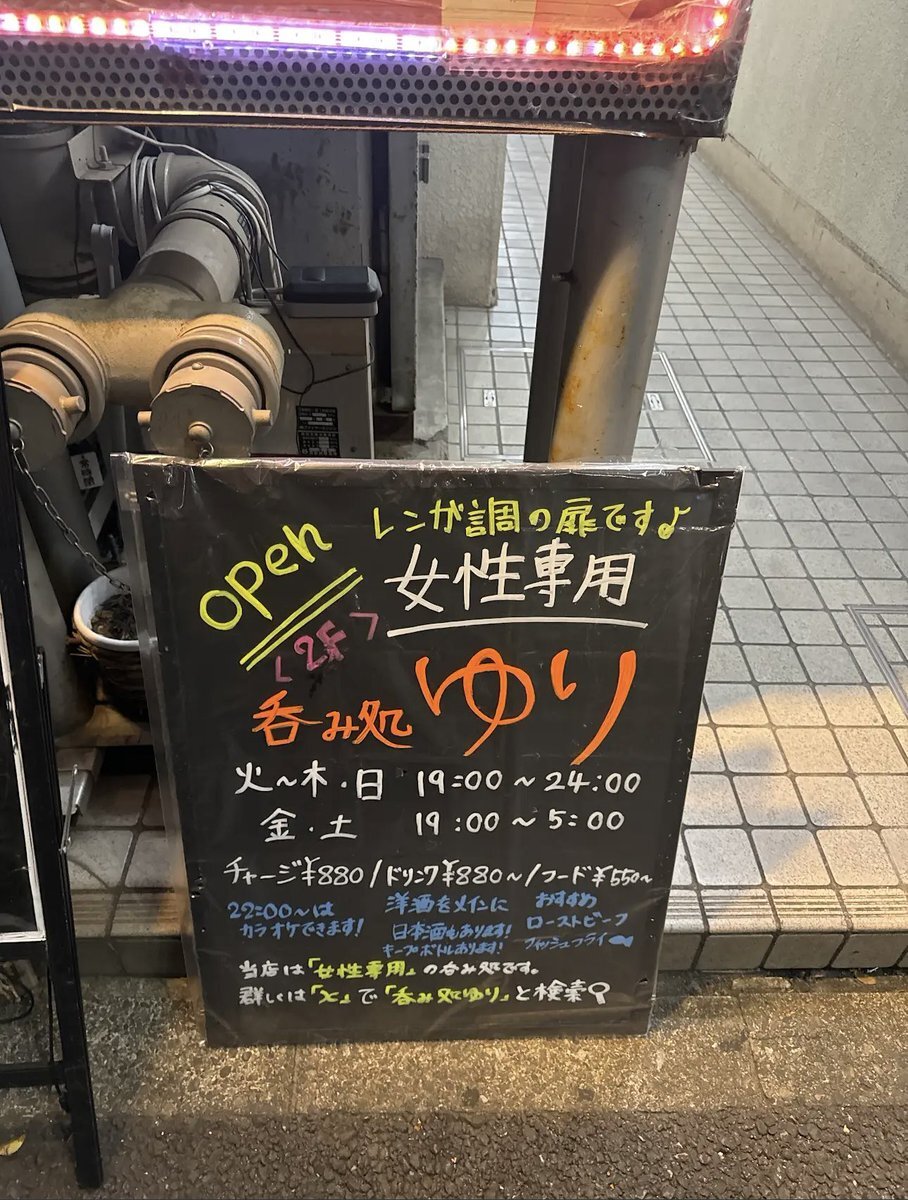 open
レンガ調の扉です♪
女性専用
〈2F〉
呑み処 ゆり
火〜木・日 19:00〜24:00
金・土 19:00〜5:00
チャージ¥880/ドリンク¥880〜/フード¥550〜
22:00〜は
カラオケできます!
洋酒をメインに
日本酒もあります!
キープボトルあります!
おすすめ
ローストビーフ
フィッシュフライ
当店は「女性専用」の呑み処です。
詳しくは「X」で「呑み処ゆり」と検索